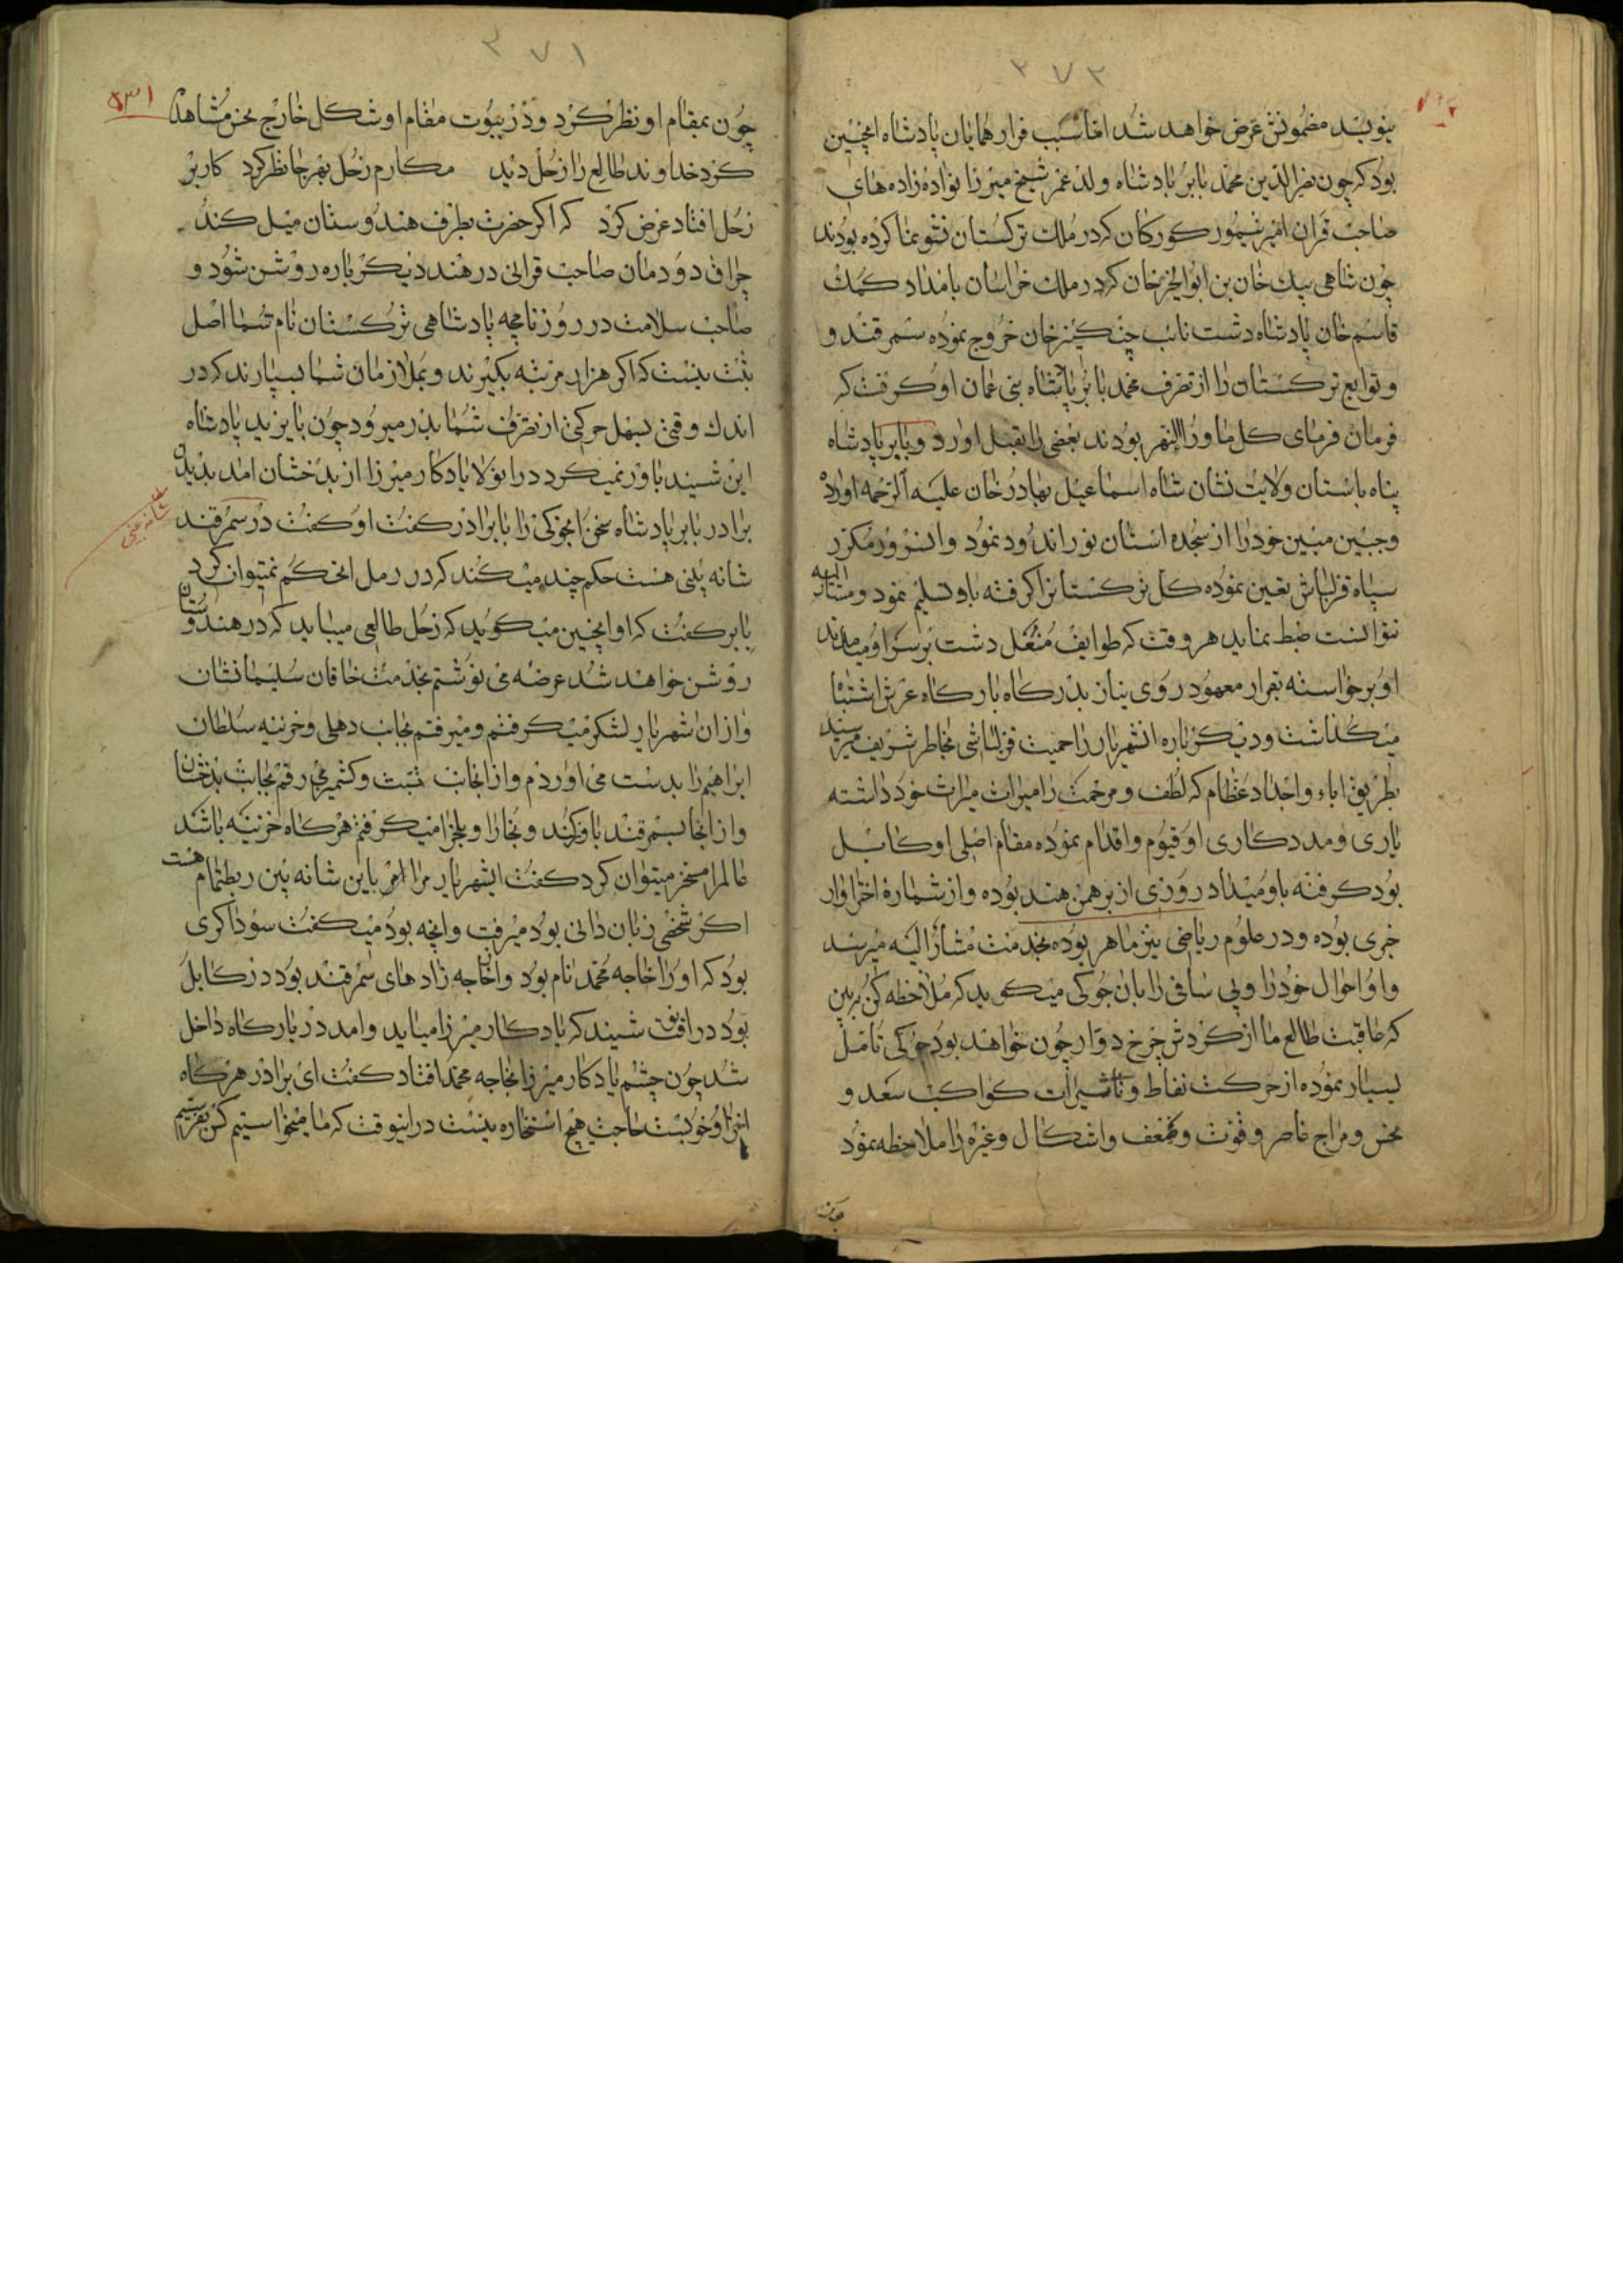 ۳۷۲
بنویسد مضمونش عرض خواهد شد اما سبب فرار همایان پادشاه انچنین
بود که چون نصرالدین محمد بابر پادشاه ولد عمر شیخ میرزا نواده زاده های
صاحب قران امیر تیمور کورکان که در ملک ترکستان نشو نما کرده بودند
چون شاهی بیک خان بن ابوالخیر خان که در ملک خراسان بامداد کمک
قاسم خان پادشاه دشت نائب چنکیز خان خروج نموده سمرقند و
و توابع ترکستان را از تصرف محمد بابر پادشاه بنی عمان او کرفت که
فرمان فرمای کل ماوراالنهر بودند بعضی را بقتل اورد و بابر پادشاه
پناه باستان ولایت نشان شاه اسماعیل بهادر خان علیه الرحمه اورده
وجبین مبین خود را از سجده استان نور اندود نمود وانسرور مکرر
سپاه قزلباش تعین نموده کل ترکستانرا کرفته باو تسلیم نمود ومشار الیه
نتوانست ضبط نماید هر وقت که طوایف مغل دشت بر سر او میامدند
او برخواسته بقرار معهود روی نیاز بدرکاه بارکاه عرش اشتباه
میکذاشت ودیکرباره انشهریار را حمیت قزلباشی بخاطر شریف میرسید
بطریق اباء واجداد عظام که لطف ومرحمت را میراث خود داشته
یاری ومددکاری او قیوم واقدام نموده مقام اصلی او کابل
بود کرفته باو میداد روزی از برهمن هند بوده واز شماره
جری بوده ودر علوم ریاضی نیز ماهر بوده بخدمت مشارالیه میرسد
واو احوال خود را وبی سافی را بان جوکی میکوید که ملاحظه کن به بین
که عاقبت طالع ما از کردش چرخ دوار چون خواهد بود جوکی تامل
بسیار نموده از حرکت نقاط وتاشیرات کواکب سعد و
نحس ومزاج عناصر وقوت وضعف واشکال وغیره را ملاحظه نمود
چون
۳۷۱
چون بمقام او نظر کرد ودر بیوت مقام او شکل خارج نحس مشاهده
کرد خداوند طالع را زحل دید مکارم زحل بهر جا نظر کرد کار بر
زحل افتاد عرض کرد که اکر حضرت بطرف هندوستان میل کند
چراق دودمان صاحب قرانی در هند دیکرباره روشن شود و
صاحب سلامت در روزنامچه پادشاهی ترکستان نام شما اصل
ثبت نیست که اکر هزار مرتبه بکیرند وبملازمان شما بسپارند که در
اندک وقتی بسهل حرکتی از تصرف شما بدر میرود چون بایزید پادشاه
این شنید باور نمیکرد درانولا یادکار میرزا از بدخشان امد بدیدن
برادر بابر پادشاه سخن انجوکی را با برادر کفت او کفت در سمرقند
شانه بینی هست حکم چند میکند که در رمل انحکم نمتیوان کرد
بابر کفت که او اینچنین میکوید که زحل طالعی میباید که در هندوستان
روشن خواهد شد عرضه می نوشتم بخدمت خاقان سلیمانشان
واز ان شهریار لشکر میکرفتم ومیرفتم بجانب دهلی وخزینه سلطان
ابراهیم را بدست می اوردم واز انجانب تبت وکشمیر میرفتم بجانب بدخشان
واز انجا بسمرقند باوزکند وبخارا وبلخرا میکرفتم هرکاه خزینه باشد
عالمرا مسخر میتوان کرد کفت ایشهریار مرا امر باین شانه بین ربط تمام هست
اکر شخصی زبان دانی بود میرفت وانچه بود میکفت سوداکری
بود که او را خاجه محمد نام بود واخاجه زاد های سمرقند بود در کابل
بود درانوقت شنید که یادکار میرزا میاید وامد در بارکاه داخل
شد چون چشم یادکار میرزا بخاجه محمد افتاد کفت ای برادر هرکاه
حاجت هیچ استخاره نیست دراینوقت که ما میخواستیم کس بفرستیم
شانه بینی